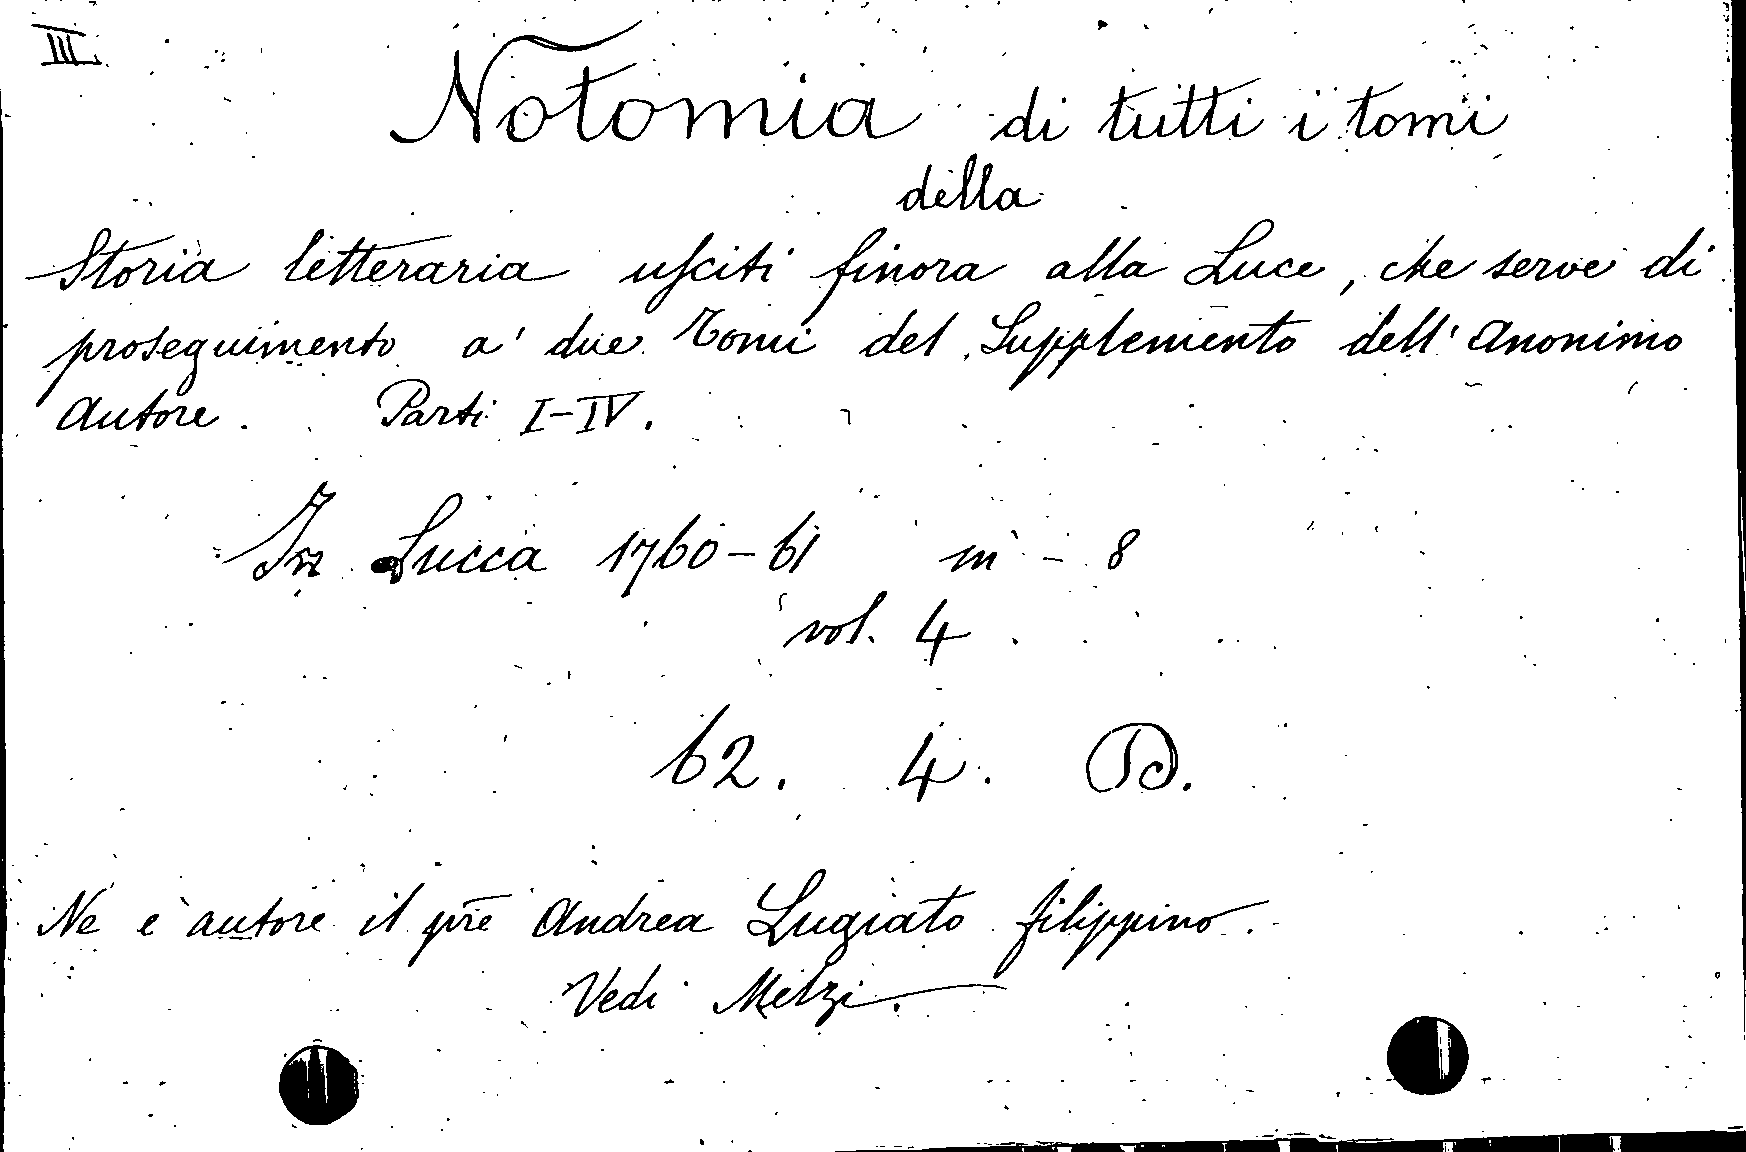 III.
Notomia di tutti i tomi
della
Storia letteraria usciti finora alla Luce, che serve di
proseguimento a' due Tomi del Supplemento dell' Anonimo
Autore. Parti I-IV.
In Lucca 1760-61 in - 8
vol. 4
62. 4. D.
Ne è autore il pre Andrea Lugiato filippino.
Vedi Melzi.